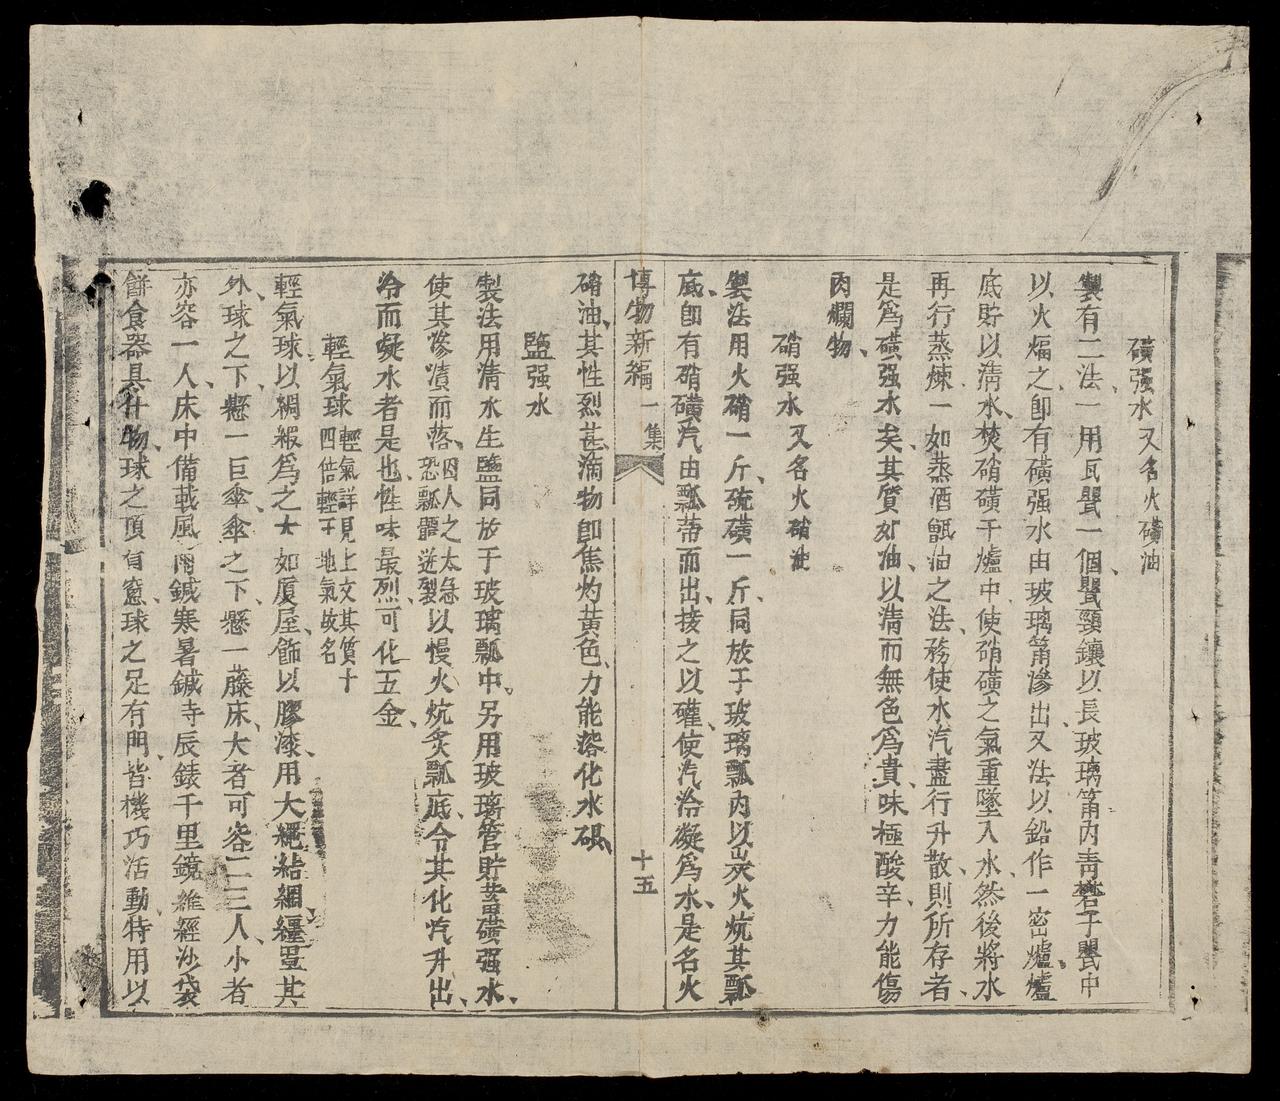 磺强水又名火磺油
製有二法一用瓦甖一個甖頸鑲以長玻璃筩內靑礬于甖中
以火煏之卽有磺强水由玻璃筩滲出又法以鉛作一密爐爐
底貯以淸水焚硝磺于爐中使硝磺之氣重墜入水然後將水
再行蒸煉一如蒸酒甑油之法務使水汽盡行升散則所存者
是爲磺强水矣其質如油以淸而無色爲貴味極酸辛力能傷
肉爛物
硝强水又名火硝油
製法用火硝一斤硫磺一斤同放于玻璃瓢內以炭火炕其瓢
底卽有硝磺汽由瓢蒂而出接之以礶使汽冷凝爲水是名火
博物新編一集
十五
硝油其性烈甚滴物卽焦灼黃色力能溶化水硍
鹽强水
製法用淸水生鹽同放于玻璃瓢中另用玻璃管貯蓄磺强水
使其滲漬而落因人之太急恐瓢噐迸裂以慢火炕炙瓢底令其化汽升出
冷而凝水者是也性味最烈可化五金
輕氣球輕氣詳見上文其質十四倍輕于地氣故名
輕氣球以綢緞爲之大如厦屋飾以膠漆用大繩結網纏罩其
外球之下懸一巨傘傘之下懸一藤床大者可容二三人小者
亦容一人床中備載風雨鍼寒暑鍼寺辰錶千里鏡維經沙袋
餅食器具什物球之頂有窻球之足有門皆機巧活動特用以